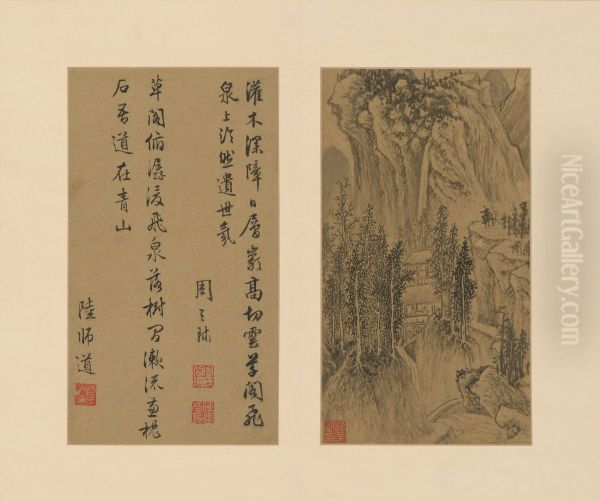 灌木深障日層巖高切雲草閣飛
泉上泠然遺世氛
周天球
草閣俯潺湲飛泉落樹間漱流枕
石吾道在青山
陸師道
NiceArtGallery.com